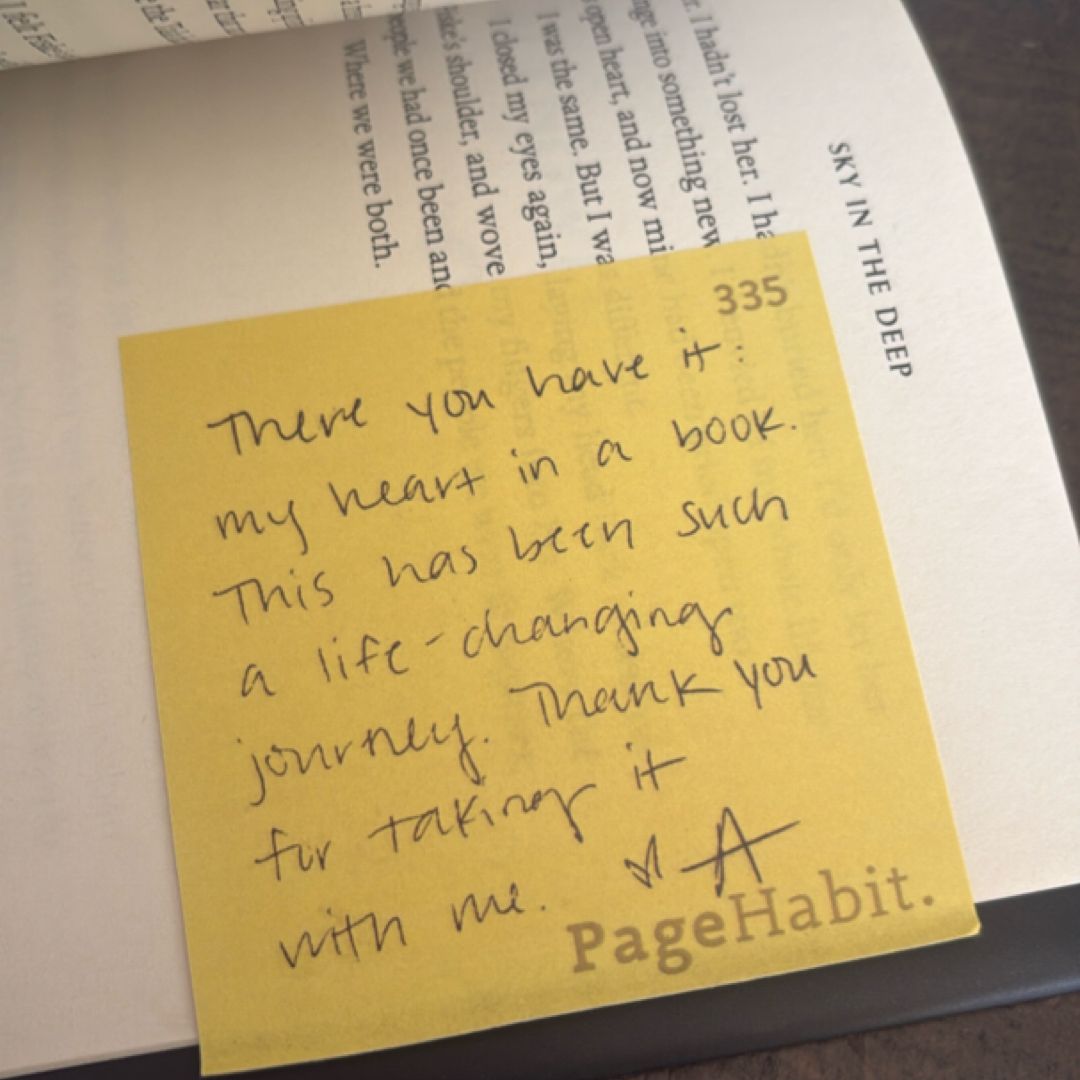 SKY IN THE DEEP
r. I hadn't lost her. I ha
nge into something new
open heart, and now mi
I was the same. But I wa
I closed my eyes again,
shoulder, and wove
people we had once been and
Where we were both.
335
There you have it..
my heart in a book.
This has been such
a life-changing
journey. Thank you
for taking it
with me. ♡ A
PageHabit.